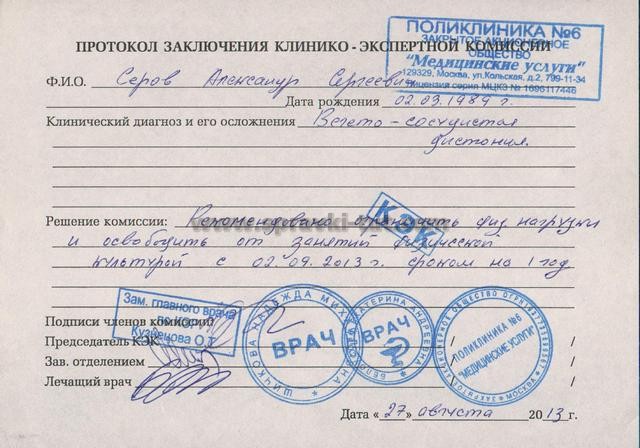 ПОЛИКЛИНИКА №6
ЗАКРЫТОЕ АКЦИОНЕРНОЕ
ОБЩЕСТВО
"Медицинские услуги"
129329, Москва, ул.Кольская, д.2, 799-11-34
Лицензия серия МЦКЗ № 1696117446
ПРОТОКОЛ ЗАКЛЮЧЕНИЯ КЛИНИКО - ЭКСПЕРТНОЙ КОМИССИИ
Ф.И.О. Серов Александр Сергеевич
Дата рождения 02.03.1989 г.
Клинический диагноз и его осложнения Вегето-сосудистая
дистония.
КЭК
Решение комиссии: Рекомендовано ограничить физ. нагрузки
и освободить от занятий физической
культурой с 02.09.2013 г. сроком на 1 год
Зам. главного врача
по КЭР
Кузнецова О.Т.
Подписи членов комиссии
Председатель КЭК / /
Зав. отделением / /
Лечащий врач / /
ШИЧКОВА НАДЕЖДА МИХАЙЛОВНА
ВРАЧ
ЕКАТЕРИНА АНДРЕЕВНА
ВРАЧ
ЗАКРЫТОЕ АКЦИОНЕРНОЕ ОБЩЕСТВО
ПОЛИКЛИНИКА №6
"МЕДИЦИНСКИЕ УСЛУГИ"
МОСКВА
Дата « 27 » августа 2013 г.